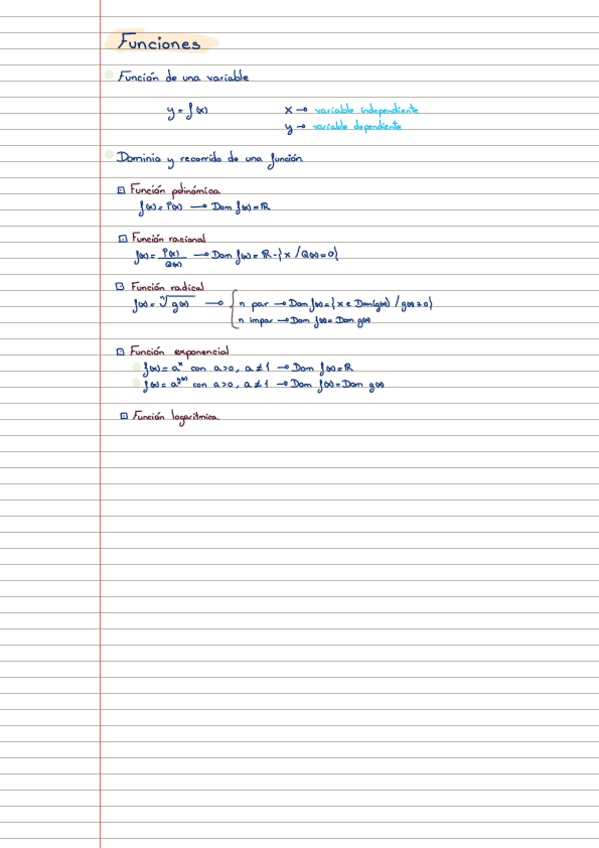 Funciones
Función de una variable
y = f(x) x → variable independiente
y → variable dependiente
Dominio y recorrido de una función
Función polinómica
f(x) = P(x) → Dom f(x) = ℝ
Función racional
f(x) = P(x)/Q(x) → Dom f(x) = ℝ - {x / Q(x) = 0}
Función radical
f(x) = ⁿ√g(x) → { n par → Dom f(x) = {x ∈ Dom(g(x)) / g(x) ≥ 0}
n impar → Dom f(x) = Dom g(x)
Función exponencial
f(x) = aˣ con a > 0, a ≠ 1 → Dom f(x) = ℝ
f(x) = a^g(x) con a > 0, a ≠ 1 → Dom f(x) = Dom g(x)
Función logarítmica